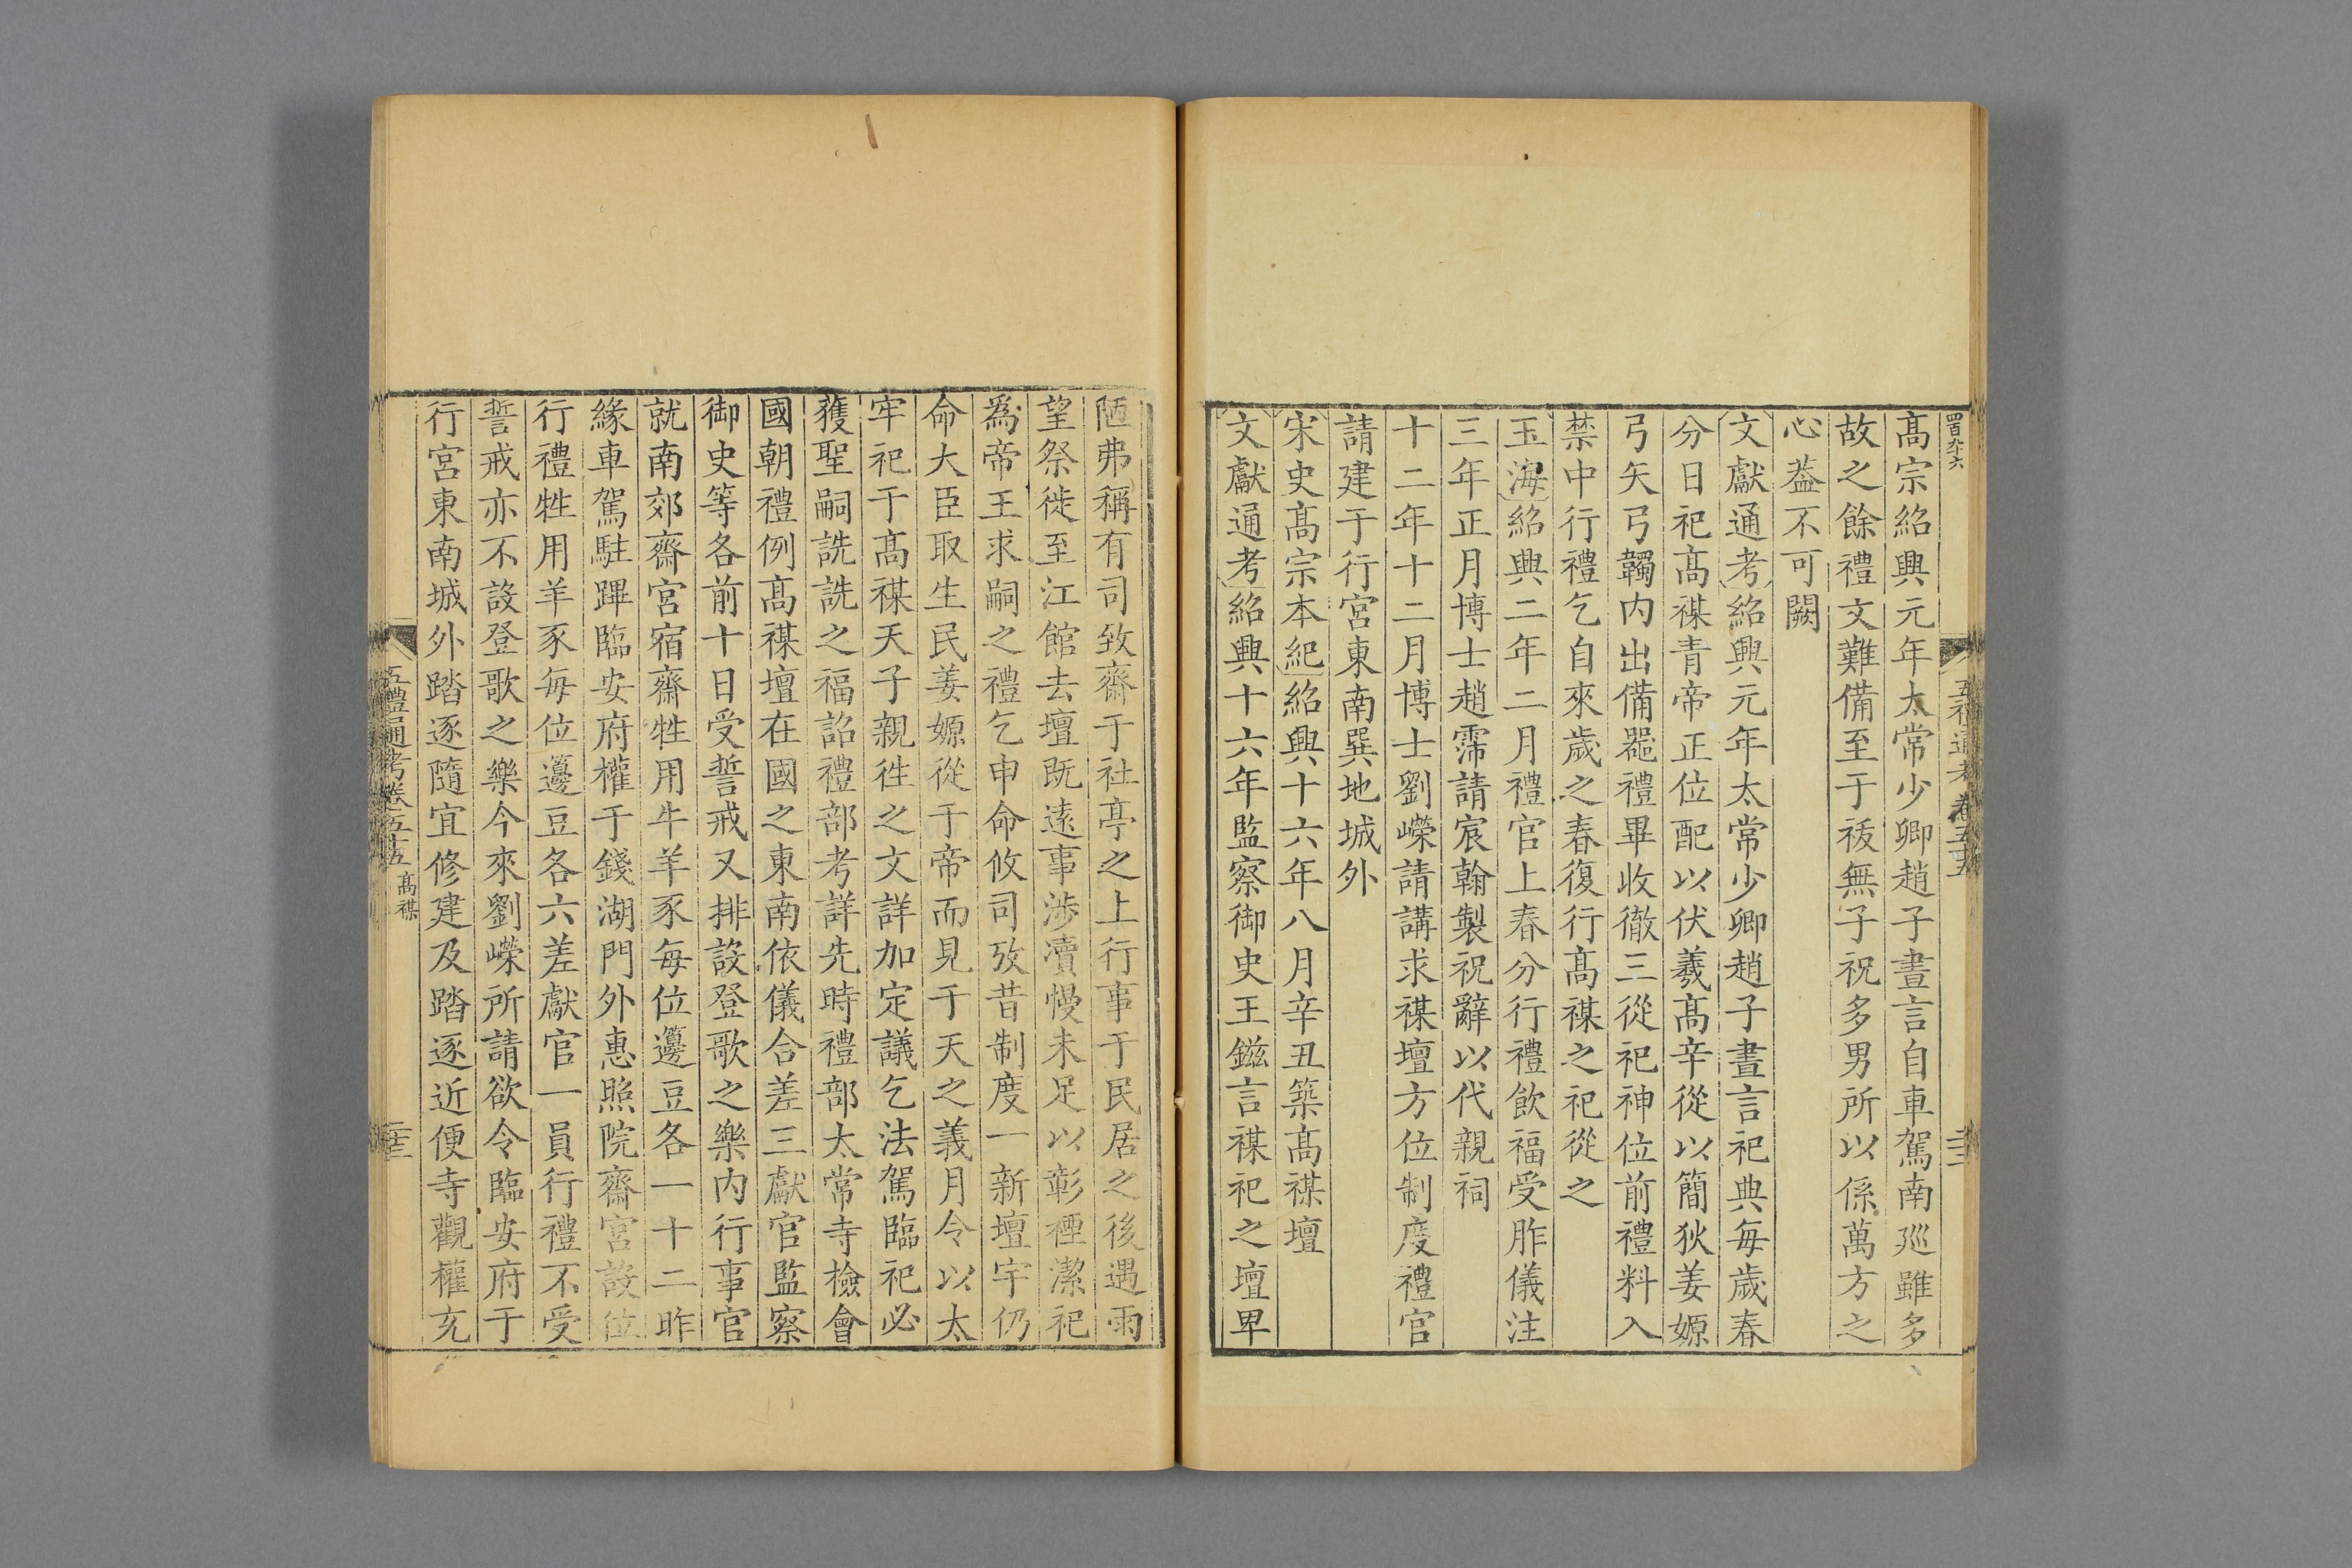 四百六十六
高宗紹興元年太常少卿趙子晝言自車駕南廵雖多
故之餘禮文難備至于祓無子祝多男所以係萬方之
心葢不可闕
文獻通考紹興元年太常少卿趙子晝言祀典每歲春
分日祀高禖青帝正位配以伏羲高辛從以簡狄姜嫄
弓矢弓韣内出備噐禮畢收徹三從祀神位前禮料入
禁中行禮乞自來歲之春復行高禖之祀從之
玉海紹興二年二月禮官上春分行禮飲福受胙儀注
三年正月博士趙霈請宸翰製祝辭以代親祠
十二年十二月博士劉嶸請講求禖壇方位制度禮官
請建于行宮東南巽地城外
宋史高宗本紀紹興十六年八月辛丑築高禖壇
文獻通考紹興十六年監察御史王鎡言禖祀之壇卑
五禮通考卷五十五
陋弗稱有司致齋于社亭之上行事于民居之後遇雨
望祭徙至江館去壇既遠事渉瀆慢未足以彰禋潔祀
爲帝王求嗣之禮乞申命攸司攷昔制度一新壇宇仍
命大臣取生民姜嫄從于帝而見于天之義月令以太
牢祀于高禖天子親徃之文詳加定議乞法駕臨祀必
獲聖嗣詵詵之福詔禮部考詳先時禮部太常寺檢會
國朝禮例高禖壇在國之東南依儀合差三獻官監察
御史等各前十日受誓戒又排設登歌之樂内行事官
就南郊齋宮宿齋牲用牛羊豕每位籩豆各一十二昨
緣車駕駐蹕臨安府權于錢湖門外惠照院齋宮設位
行禮牲用羊豕每位籩豆各六差獻官一員行禮不受
誓戒亦不設登歌之樂今來劉嶸所請欲令臨安府于
行宮東南城外踏逐隨宜修建及踏逐近便寺觀權充
五禮通考卷五十五 高禖